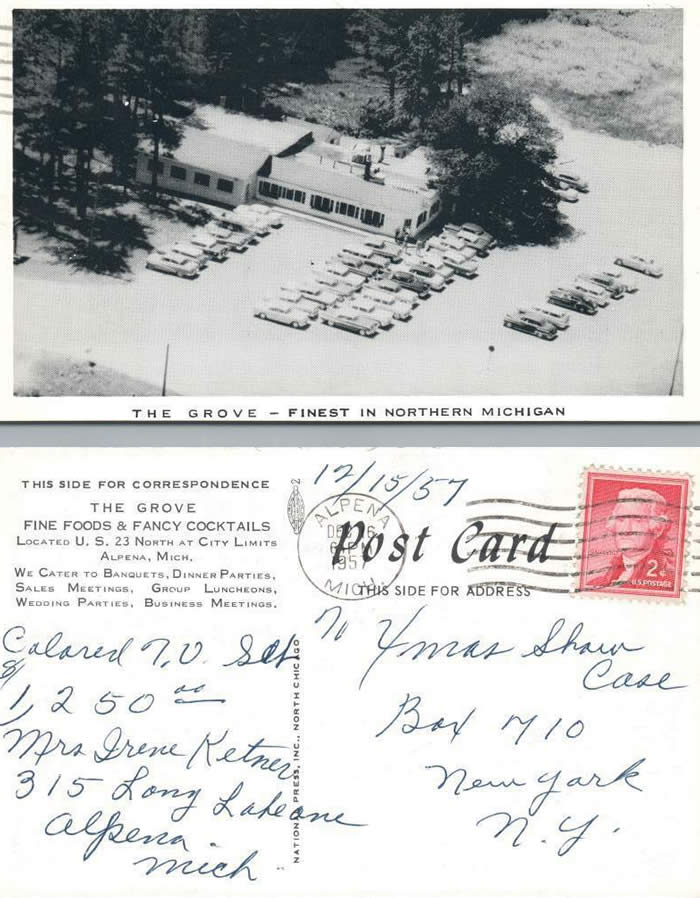 THE GROVE – FINEST IN NORTHERN MICHIGAN
THIS SIDE FOR CORRESPONDENCE
THE GROVE
FINE FOODS & FANCY COCKTAILS
LOCATED U. S. 23 NORTH AT CITY LIMITS
ALPENA, MICH.
WE CATER TO BANQUETS, DINNER PARTIES,
SALES MEETINGS, GROUP LUNCHEONS,
WEDDING PARTIES, BUSINESS MEETINGS.
Colored T.V. Set
$1,250 00
Mrs Irene Ketner
315 Long Lake ave
Alpena.
Mich
NATIONAL PRESS, INC., NORTH CHICAGO
2
12/15/57
ALPENA
DEC 16
6 PM
1957
MICH.
Post Card
THIS SIDE FOR ADDRESS
2¢
U.S. POSTAGE
To Xmas Show
Case
Box 710
New York
N.Y.